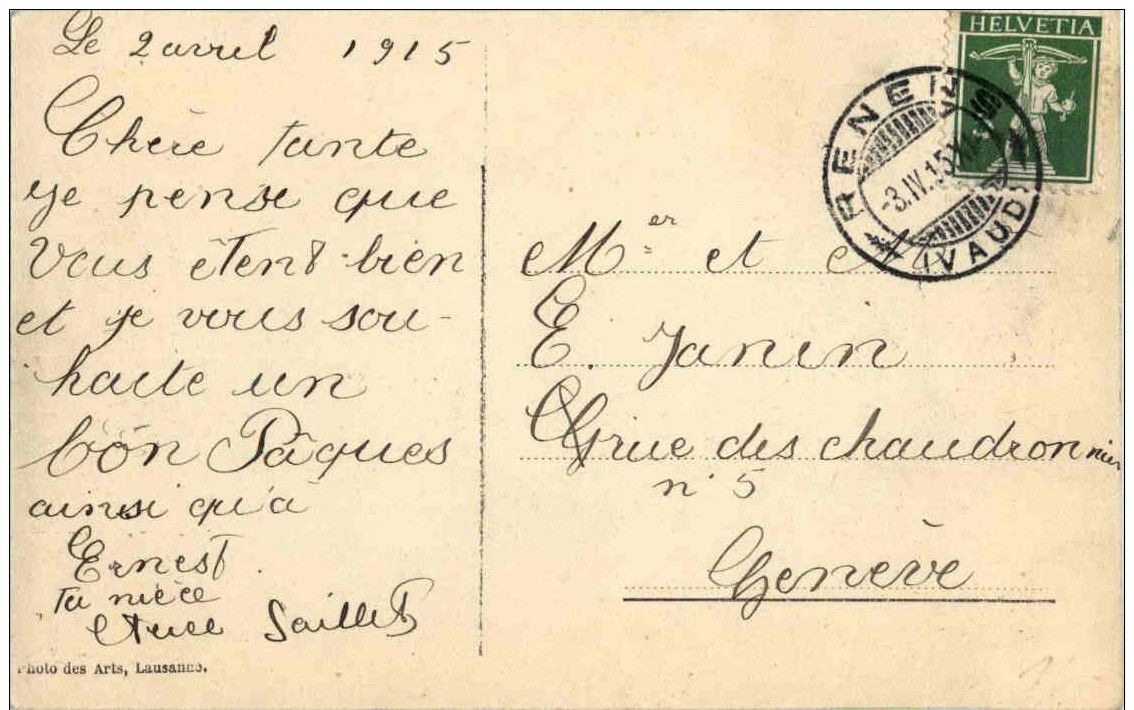 Le 2 avril 1915
Chère tante
je pense que
Vous êtent bien
et je vous sou-
haite un
bon Pâques
ainsi qu'à
Ernest
Ta nièce
Saillet
Photo des Arts, Lausanne.
HELVETIA
RENENS
-3.IV.15
(VAUD)
Mer et
E. Janin
rue des chaudronnier
n° 5
Genève